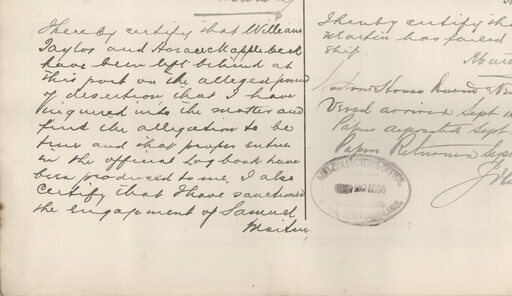 I hereby certify that William
Taylor and Horace Mapplebeck
have been left behind at
this port on the alleged ground
of desertion that I have
inquired into the matter and
find the allegation to be
true and that proper entries
in the official Log book have
been produced to me. I also
certify that I have sanctioned
the engagement of Samuel
Martin
I hereby certify tha
Martin has failed
ship.
Custom House
Vessel arrived Sept
Papers deposited Sept
Papers Returned Sep
SUB-COLLECTOR'S OFFICE